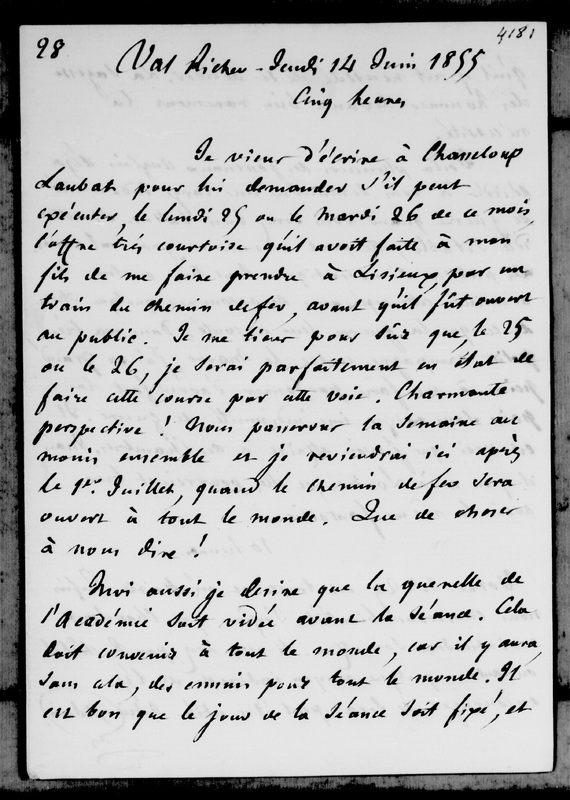 28
4181
Val Richer - Jeudi 14 Juin 1855
Cinq heures
Je viens d'écrire à Chasseloup
Laubat pour lui demander s'il peut
exécuter, le lundi 25 ou le mardi 26 de ce mois,
l'offre très courtoise qu'il avoit faite à mon
fils de me faire prendre à Lisieux, par un
train du chemin de fer, avant qu'il fût ouvert
au public. Je me tiens pour sûr que, le 25
ou le 26, je serai parfaitement en état de
faire cette course par cette voie. Charmante
perspective ! Nous passerons la semaine au
moins ensemble et je reviendrai ici après
le 1er Juillet, quand le chemin de fer sera
ouvert à tout le monde. Que de choses
à nous dire !
Moi aussi je desire que la querelle de
l'Académie soit vidée avant la séance. Cela
doit convenir à tout le monde, car il y aura,
sans cela, des ennuis pour tout le monde. Il
est bon que le jour de la séance soit fixé, et